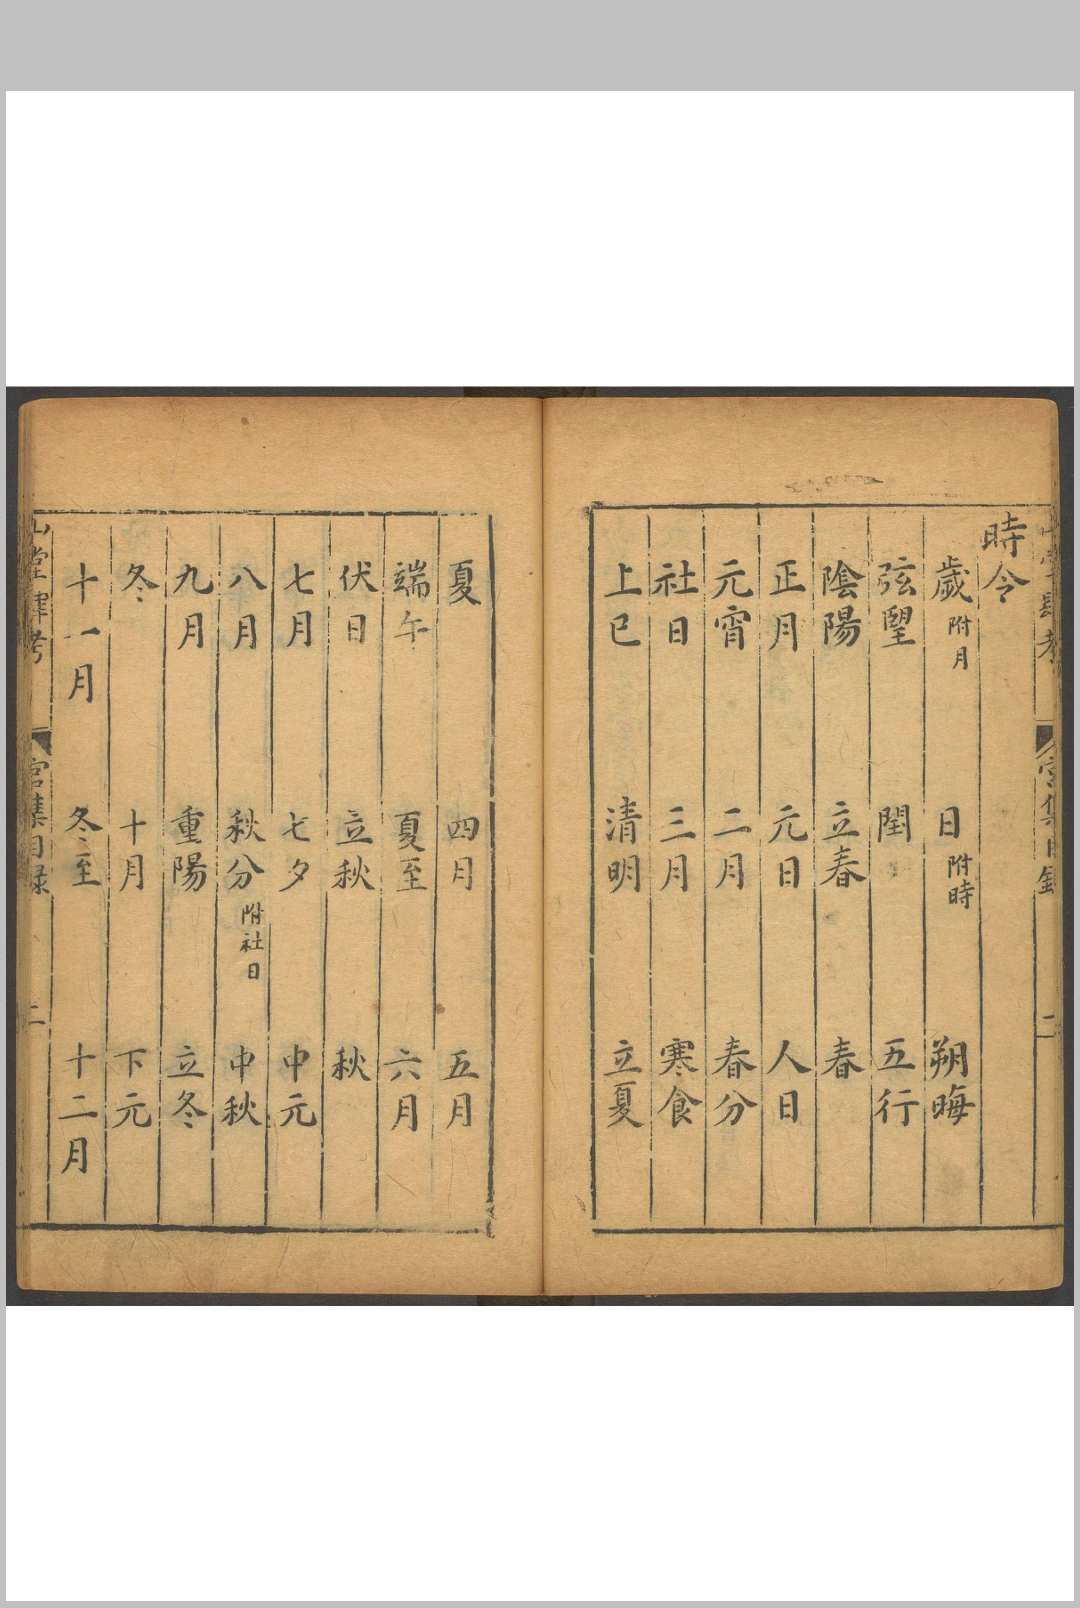 時令
歲附月 日附時 朔晦
弦朢 閏 五行
陰陽 立春 春
正月 元日 人日
元宵 二月 春分
社日 三月 寒食
上巳 清明 立夏
夏 四月 五月
端午 夏至 六月
伏日 立秋 秋
七月 七夕 中元
八月 秋分附社日 中秋
九月 重陽 立冬
冬 十月 下元
十一月 冬至 十二月
山堂肆考 宮集目錄 二